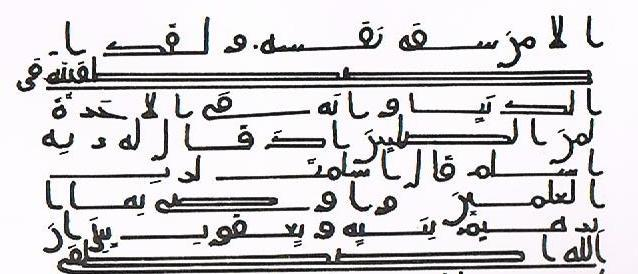 الا من سفه نفسه ولقد ا
صطفينه في
الدنيا وانه في الاخرة
لمن الصلحين اذ قال له ربه
اسلم قال اسلمت لرب
العلمين واوصى بها ا
برهيم بنيه ويعقوب يبني ان
الله اصطفى